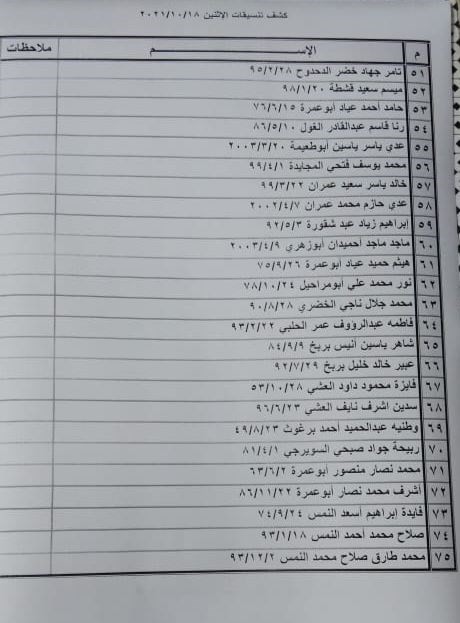 كشف تنسيقات الإثنين ٢٠٢١/١٠/١٨
م الإســـــم ملاحظات
٥١ تامر جهاد خضر الدحدوح ٩٥/٢/٢٨
٥٢ ميسم سعيد قشطة ٩٨/١/٢٠
٥٣ حامد أحمد عياد أبوعمرة ٧٦/٦/١٥
٥٤ رنا قاسم عبدالقادر الغول ٨٦/٥/١٠
٥٥ عدي ياسر ياسين أبوطعيمة ٢٠٠٣/٣/٢٠
٥٦ محمد يوسف فتحي المجايدة ٩٩/٤/١
٥٧ خالد ياسر سعيد عمران ٩٩/٣/٢٢
٥٨ عدي حازم محمد عمران ٢٠٠٢/٤/٧
٥٩ إبراهيم زياد عبد شقورة ٩٢/٥/٣
٦٠ ماجد ماجد أحميدان أبوزهري ٢٠٠٣/٤/٩
٦١ هيثم حميد عياد أبوعمرة ٧٥/٩/٢٦
٦٢ نور محمد علي أبومراحيل ٧٨/١٠/٢٤
٦٣ محمد جلال ناجي الخضري ٩٠/٨/٢٨
٦٤ فاطمه عبدالرؤوف عمر الحلبي ٩٣/٢/٢٢
٦٥ شاهر ياسين أنيس بربخ ٨٤/٩/٩
٦٦ عبير خالد خليل بربخ ٩٢/٧/٢٩
٦٧ فايزة محمود داود العشي ٥٣/١٠/٢٨
٦٨ سدين اشرف نايف العشي ٩٦/٦/٢٣
٦٩ وطنيه عبدالحميد أحمد برغوث ٤٩/٨/٢٣
٧٠ ربيحة جواد صبحي السويرجي ٨١/٤/١
٧١ محمد نصار منصور أبوعمرة ٦٣/٦/٢
٧٢ أشرف محمد نصار أبوعمرة ٨٦/١١/٢٢
٧٣ فايدة إبراهيم أسعد النمس ٧٤/٩/٢٤
٧٤ صلاح محمد أحمد النمس ٩٣/١/١٨
٧٥ محمد طارق صلاح محمد النمس ٩٣/١٢/٢